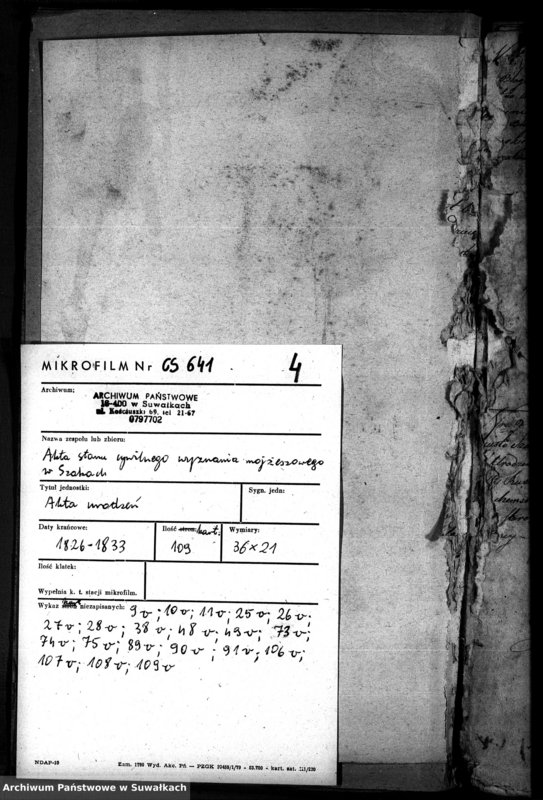 MIKROFILM Nr OS 641 4
Archiwum:
ARCHIWUM PAŃSTWOWE
16-400 w Suwałkach
ul. Kościuszki 69, tel 21-67
0797702
Nazwa zespołu lub zbioru:
Akta stanu cywilnego wyznania mojżeszowego
w Szakach
Tytuł jednostki:
Sygn. jedn:
Akta urodzeń
Daty krańcowe:
Ilość stron: kart.
Wymiary:
1826-1833
109
36×21
Ilość klatek:
Wypełnia k. t. stacji mikrofilm.
Wykaz kart niezapisanych: 9v; 10v; 11v; 25v; 26v;
27v; 28v; 38v; 48v; 49v; 73v;
74v; 75v; 89v; 90v; 91v; 106v;
107v; 108v; 109v
NDAP-50
Zam. 1796 Wyd. Akc. Pń — PZGK
Archiwum Państwowe w Suwałkach